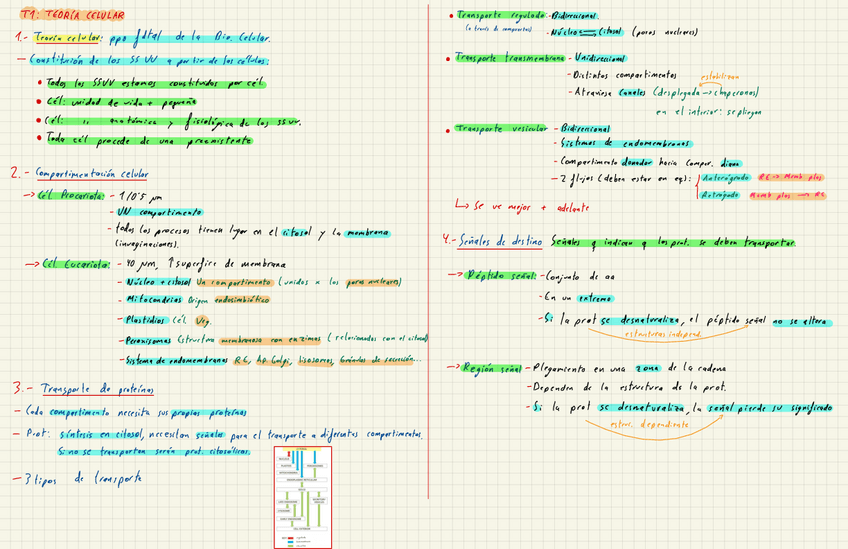 T1: TEORÍA CELULAR
1.- Teoría celular: ppo fdtal de la Bio. Celular.
- Constitución de los SSVV a partir de las células:
• Todos los SSVV estamos constituidos por cél.
• Cél: unidad de vida + pequeña
• Cél: " anatómica y fisiológica de los SSVV.
• Toda cél procede de una preexistente
2.- Compartimentación celular
→ Cél Procariota: - 1/0'5 µm
- UN compartimento
- todos los procesos tienen lugar en el citosol y la membrana
(invaginaciones).
→ Cél Eucariota: - 40 µm, ↑ superficie de membrana
- Núcleo + citosol Un compartimento (unidos x los poros nucleares)
- Mitocondrias Origen endosimbiótico
- Plastidios Cél Veg.
- Peroxisomas Estructura membranosa con enzimas (relacionados con el citosol)
- Sistema de endomembranas RE, Ap Golgi, lisosomas, Gránulos de secreción...
3.- Transporte de proteínas
- Cada compartimento necesita sus propias proteínas
- Prot: síntesis en citosol, necesitan señales para el transporte a diferentes compartimentos.
Si no se transportan serán prot. citosólicas.
- 3 tipos de transporte
• Transporte regulado - Bidireccional.
(a través de compuertas) - Núcleo ⇌ Citosol (poros nucleares)
• Transporte transmembrana - Unidireccional
- Distintos compartimentos
estabilizan
- Atraviesa canales (desplegada → chaperonas)
en el interior: se pliegan
• Transporte vesicular - Bidireccional
- Sistemas de endomembranas
- Compartimento donador hacia compar. diana
- 2 flujos (deben estar en eq): Anterógrado RE → Memb plas
Retrógrado Memb plas → RE
↳ Se ve mejor + adelante
4.- Señales de destino Señales q indican q los prot. se deben transportar
→ Péptido señal: - Conjunto de aa
- En un extremo
- Si la prot se desnaturaliza, el péptido señal no se altera
estructuras independ.
→ Región señal - Plegamiento en una zona de la cadena
- Dependen de la estructura de la prot.
- Si la prot se desnaturaliza, la señal pierde su significado
estruc. dependiente